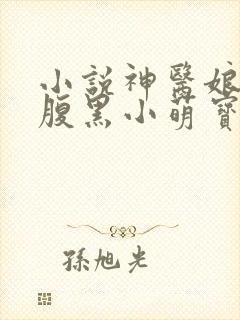 小說神醫娘
腹黑小萌寶
孫旭光